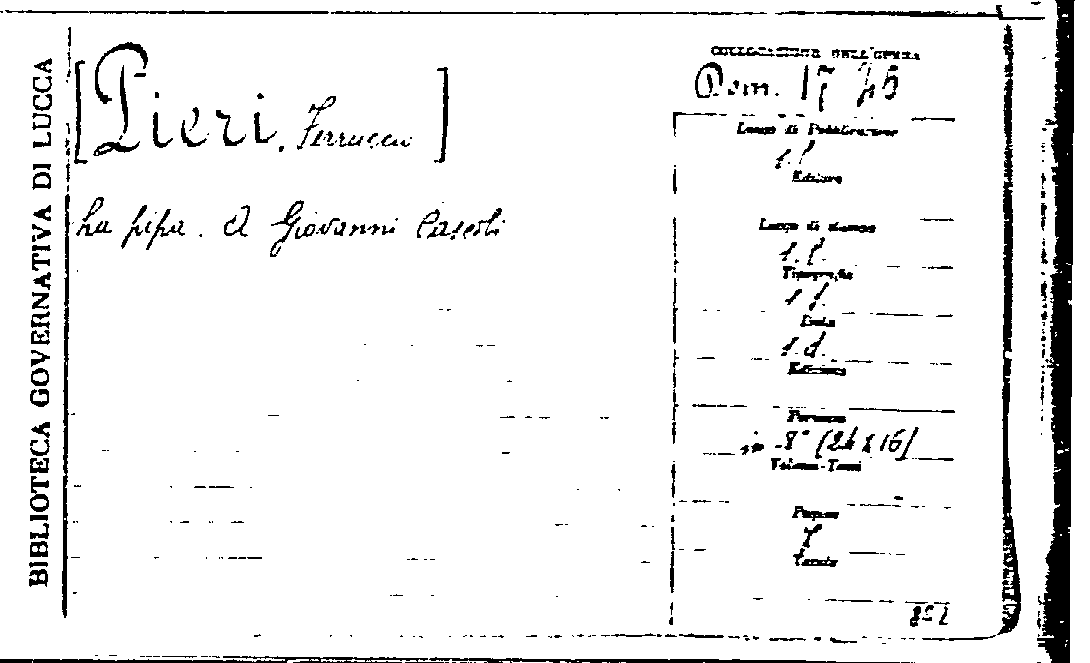 BIBLIOTECA GOVERNATIVA DI LUCCA
[Pieri, Ferruccio]
La pipa. A Giovanni Casoli
COLLOCAZIONE DELL'OPERA
Dom. 17 26
Luogo di Pubblicazione
s.l.
Editore
Luogo di stampa
s.l.
Tipografia
s.t.
Data
s.d.
Edizione
Formato
in-8° (24 x 16)
Volumi-Tomi
Pagine
7
Tavole